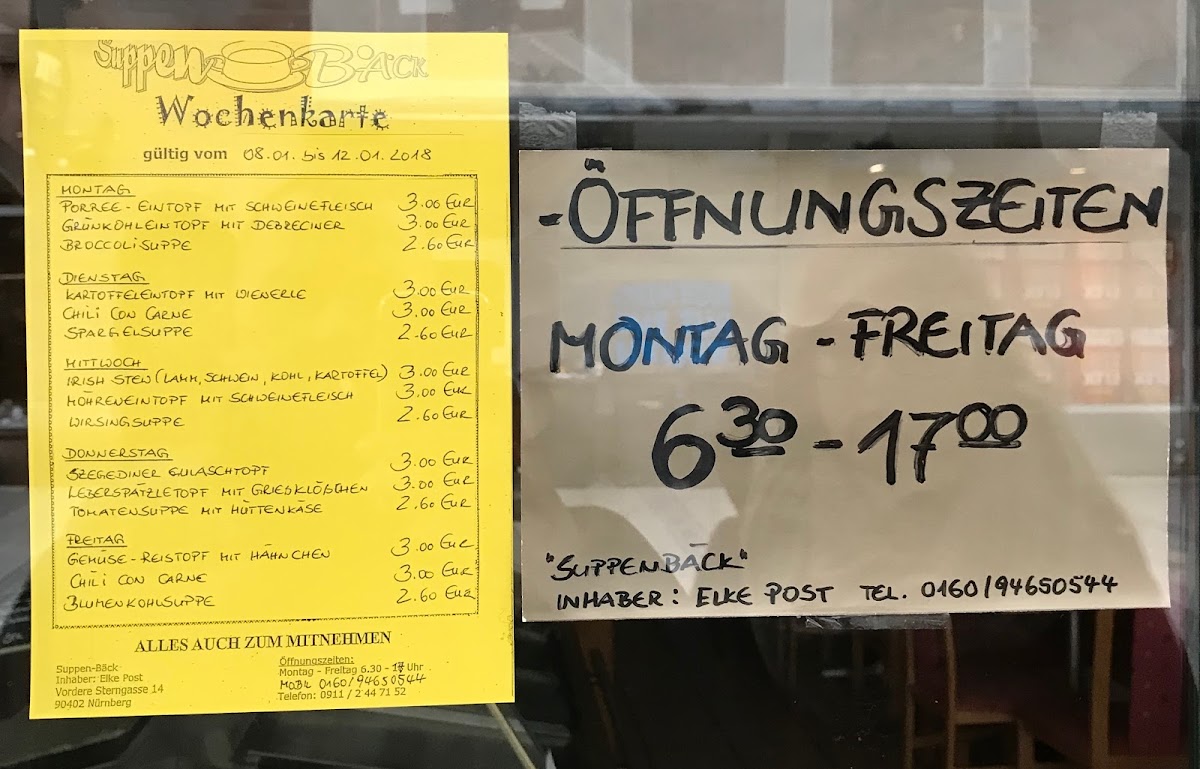 Suppen BÄCK
Wochenkarte
gültig vom 08.01. bis 12.01.2018
MONTAG
PORREE-EINTOPF MIT SCHWEINEFLEISCH 3.00 EUR
GRÜNKOHLEINTOPF MIT DEBRECINER 3.00 EUR
BROCCOLISUPPE 2.60 EUR
DIENSTAG
KARTOFFELEINTOPF MIT WIENERLE 3.00 EUR
CHILI CON CARNE 3.00 EUR
SPARGELSUPPE 2.60 EUR
MITTWOCH
IRISH STEW (LAMM, SCHWEIN, KOHL, KARTOFFEL) 3.00 EUR
MÖHRENEINTOPF MIT SCHWEINEFLEISCH 3.00 EUR
WIRSINGSUPPE 2.60 EUR
DONNERSTAG
SZEGEDINER GULASCHTOPF 3.00 EUR
LEBERSPÄTZLETOPF MIT GRIEßKLÖßCHEN 3.00 EUR
TOMATENSUPPE MIT HÜTTENKÄSE 2.60 EUR
FREITAG
GEMÜSE-REISTOPF MIT HÄHNCHEN 3.00 EUR
CHILI CON CARNE 3.00 EUR
BLUMENKOHLSUPPE 2.60 EUR
ALLES AUCH ZUM MITNEHMEN
Suppen-Bäck
Inhaber: Elke Post
Vordere Sterngasse 14
90402 Nürnberg
Öffnungszeiten:
Montag - Freitag 6.30 - 17 Uhr
MOBIL 0160/94650544
Telefon: 0911 / 2 44 71 52
-ÖFFNUNGSZEITEN
MONTAG - FREITAG
6³⁰ - 17⁰⁰
"SUPPENBÄCK"
INHABER: ELKE POST TEL. 0160/94650544